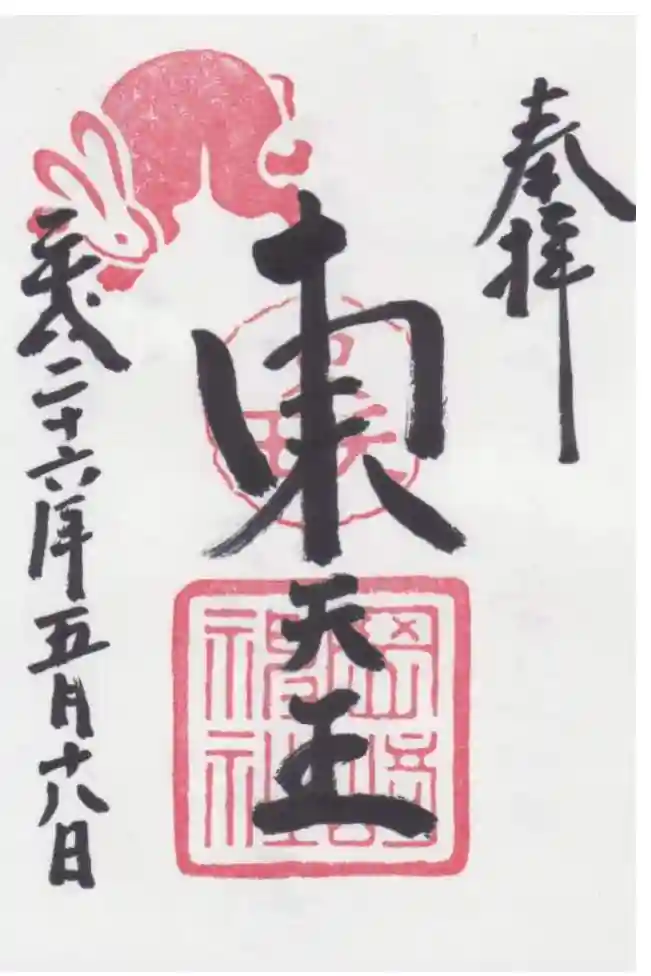 奉拝
東天王
岡崎
神社
平成二十六年五月十八日